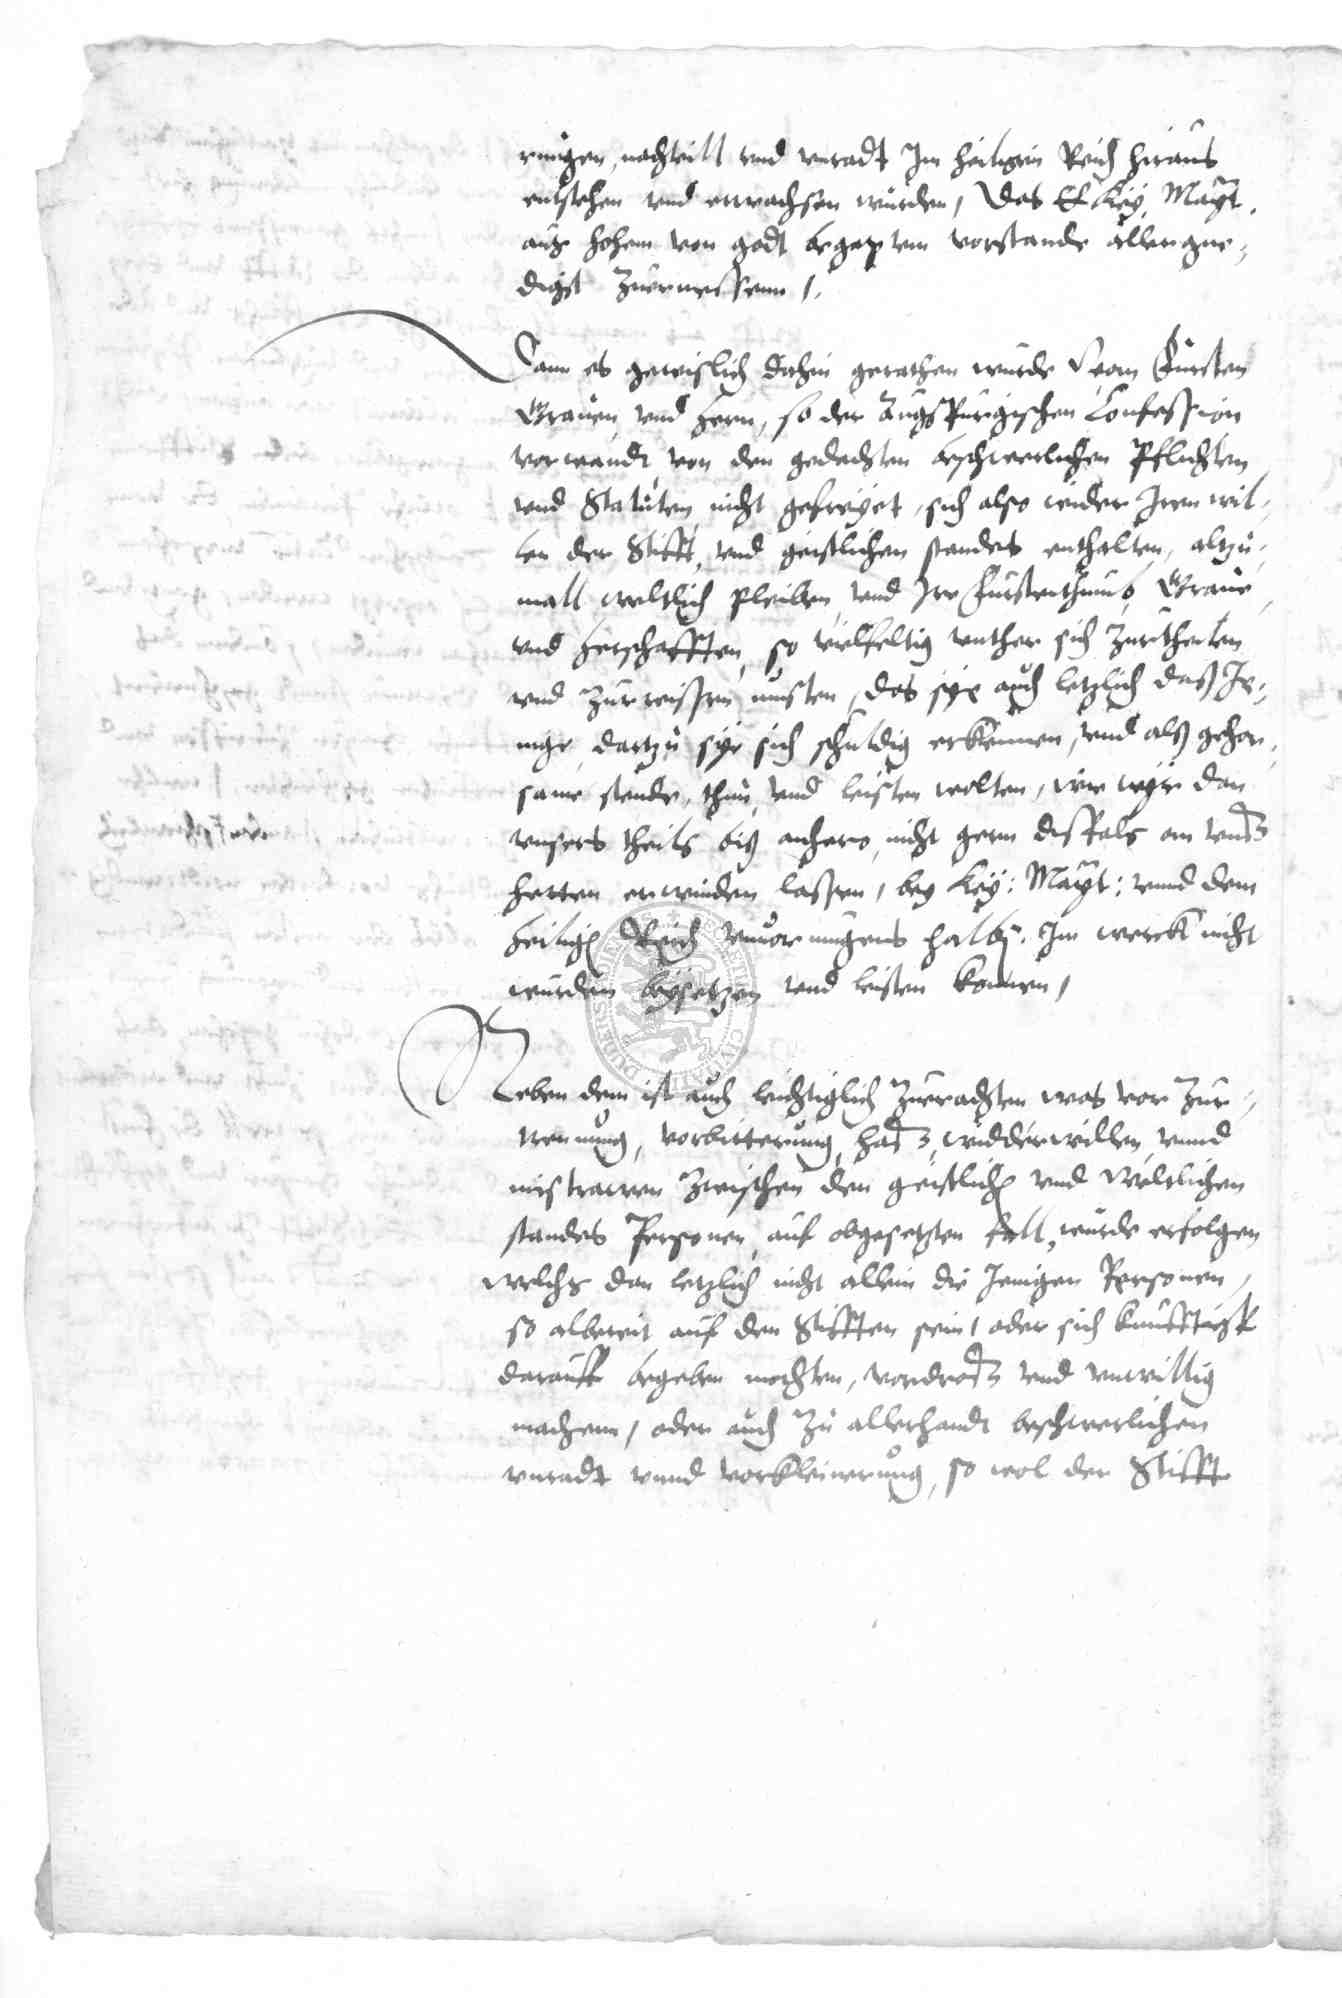 rungen, nachteill und unradt Im heiligen Reich hiraus
entstehen und erwachsen wurden, Das E Key. Mayt.
aus hohem von godt begaptem vorstande allergne,
digst zuermessenn,
Dann es gewislich dahin gerathen wurde Wann Fursten
Graven und hern, so der Augspurgischen Confession
verwandt, von den gedachten beschwerlichen Pflichten
und Statuten nicht gefreyet, sich also wider Iren wil,
len der Stifft und geistlichen standes enthalten, altzu,
mall weltlich pleiben und Ire Furstenthumb, Grave,
und herschafften, so vielfeltig unther sich zurtheilen
und zurreissen musten, das sye auch letzlich das Je,
nige dartzu sye sich schuldig erkennen, und als gehor,
same stende, thun und leisten wolten, wie wyr dan
unsers theils bis anhero, nicht gern disfals an uns
hetten erwinden lassen, bey Key: Mayt: unnd dem
heiligen Reich unvormugens halben Im werck nicht
wurden beysetzen und leisten konnen,
Neben dem ist auch leichtiglich zuerachten was vor zur,
trennung, vorbitterung, has, widderwillen unnd
mistrawen zwischen den geistlichen und Weltlichen
standes Personen, auf obgesetzten fall, wurde erfolgen
welchs dan letzlich nicht allein die Jenigen Personen,
so albereit auf den Stifften sein, oder sich kunfftigk
darauff begeben mochten, vordros und unwillig
machenn, oder auch zu allerhandt beschwerlichen
unradt unnd vorkleinerung, so wol der Stifft